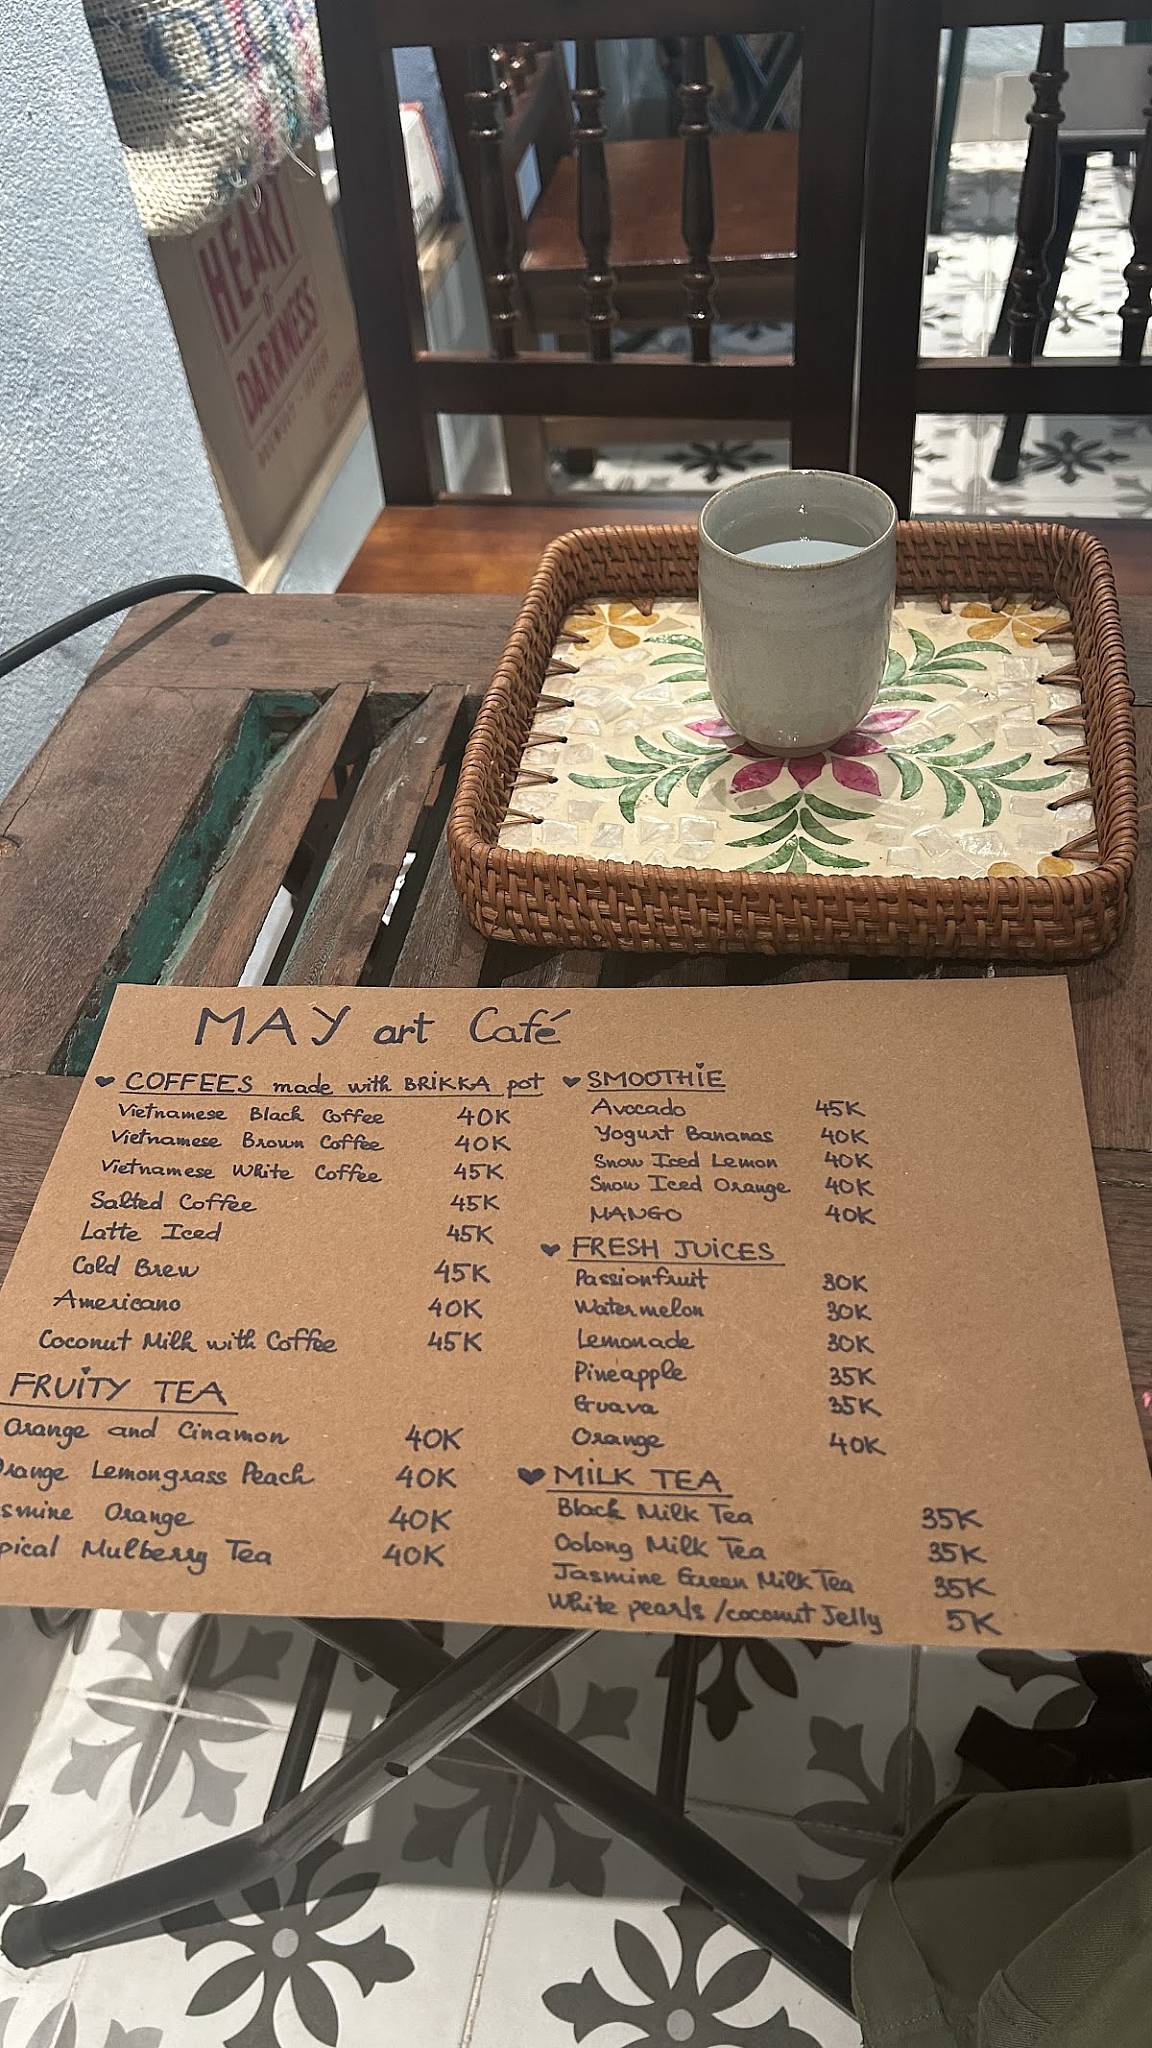 HEART
OF
DARKNESS
MAY art Café
COFFEES made with BRIKKA pot
Vietnamese Black Coffee 40K
Vietnamese Brown Coffee 40K
Vietnamese White Coffee 45K
Salted Coffee 45K
Latte Iced 45K
Cold Brew 45K
Americano 40K
Coconut Milk with Coffee 45K
FRUITY TEA
Orange and Cinamon 40K
Orange Lemongrass Peach 40K
smine Orange 40K
pical Mulberry Tea 40K
SMOOTHIE
Avocado 45K
Yogurt Bananas 40K
Snow Iced Lemon 40K
Snow Iced Orange 40K
MANGO 40K
FRESH JUICES
Passionfruit 30K
Watermelon 30K
Lemonade 30K
Pineapple 35K
Guava 35K
Orange 40K
MILK TEA
Black Milk Tea 35K
Oolong Milk Tea 35K
Jasmine Green Milk Tea 35K
White pearls / coconut Jelly 5K